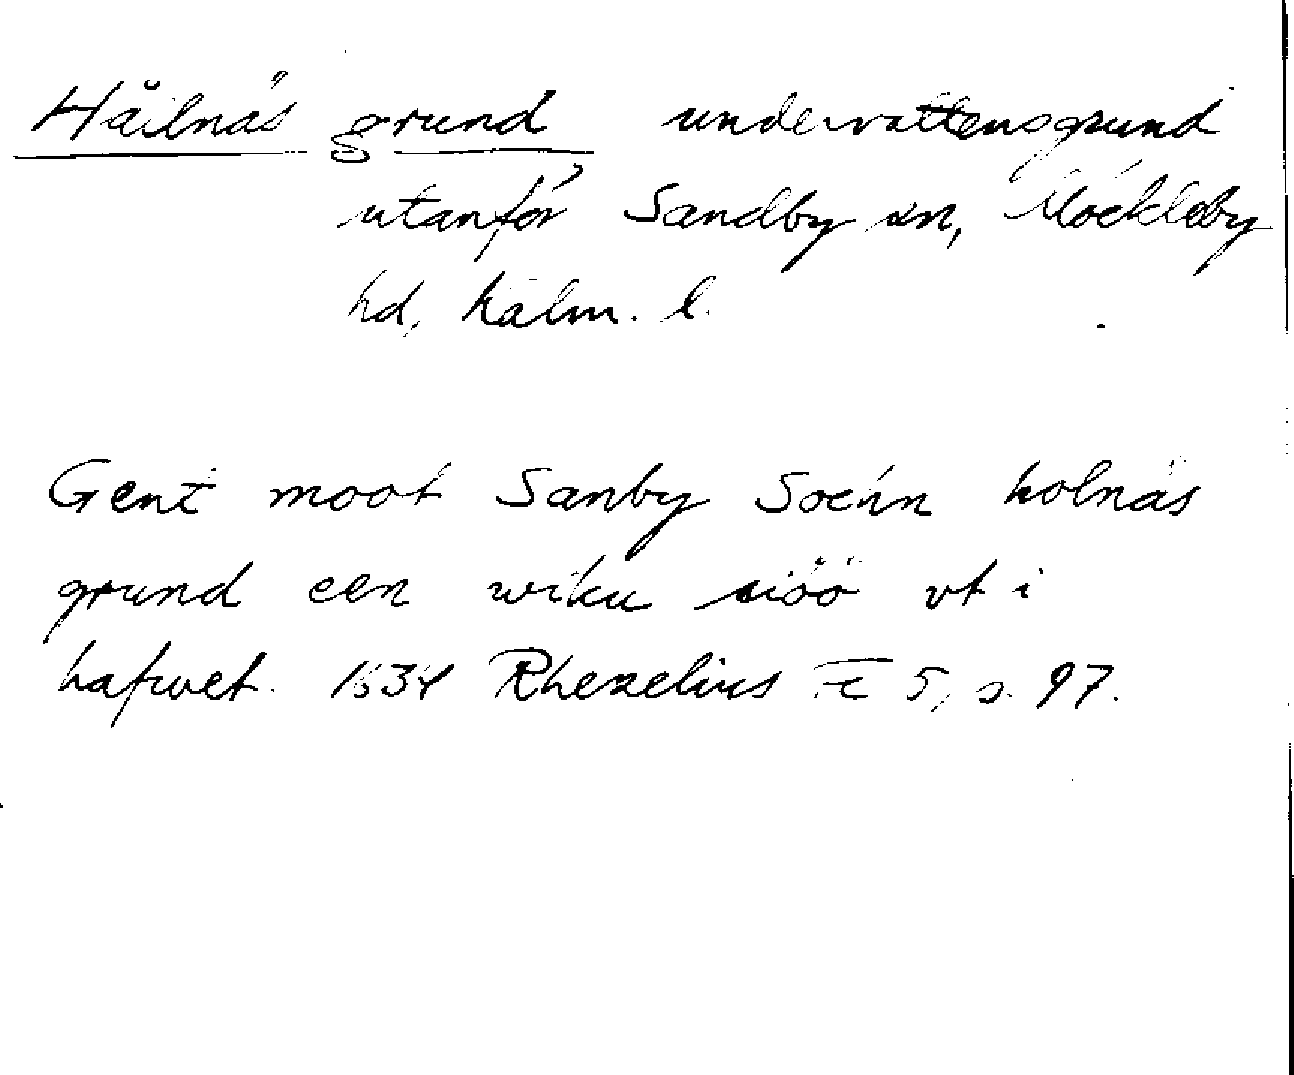 Håilnäs grund undervattensgrund
utanför Sandby sn, Möckleby
hd, Kalm. l.
Gent moot Sanby Sochn holnäs
grund een wiku siöö vt i
hafwet. 1634 Rhezelius Fc 5, s. 97.